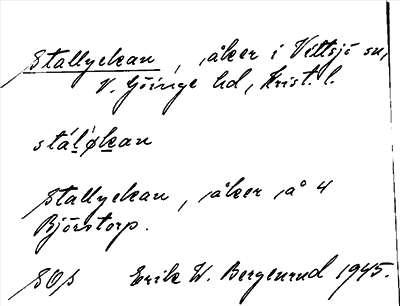 Stallyckan, åker i Vittsjö sn,
V. Göinge hd, Krist. l.
stáløkan
Stallyckan, åker å 4
Björstorp.
SOS Erik W. Bergenrud 1945.